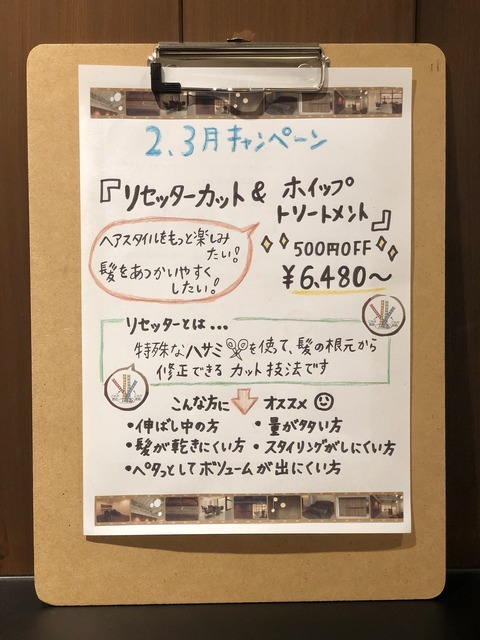 2、3月キャンペーン
『リセッターカット & ホイップ
トリートメント』
ヘアスタイルをもっと楽しみ
たい!
髪をあつかいやすく
したい!
500円OFF
¥6,480〜
リセッターとは...
特殊なハサミを使って、髪の根元から
修正できる カット技法です
こんな方に オススメ
・伸ばし中の方 ・量が多い方
・髪が乾きにくい方 ・スタイリングがしにくい方
・ペタっとしてボリュームが出にくい方